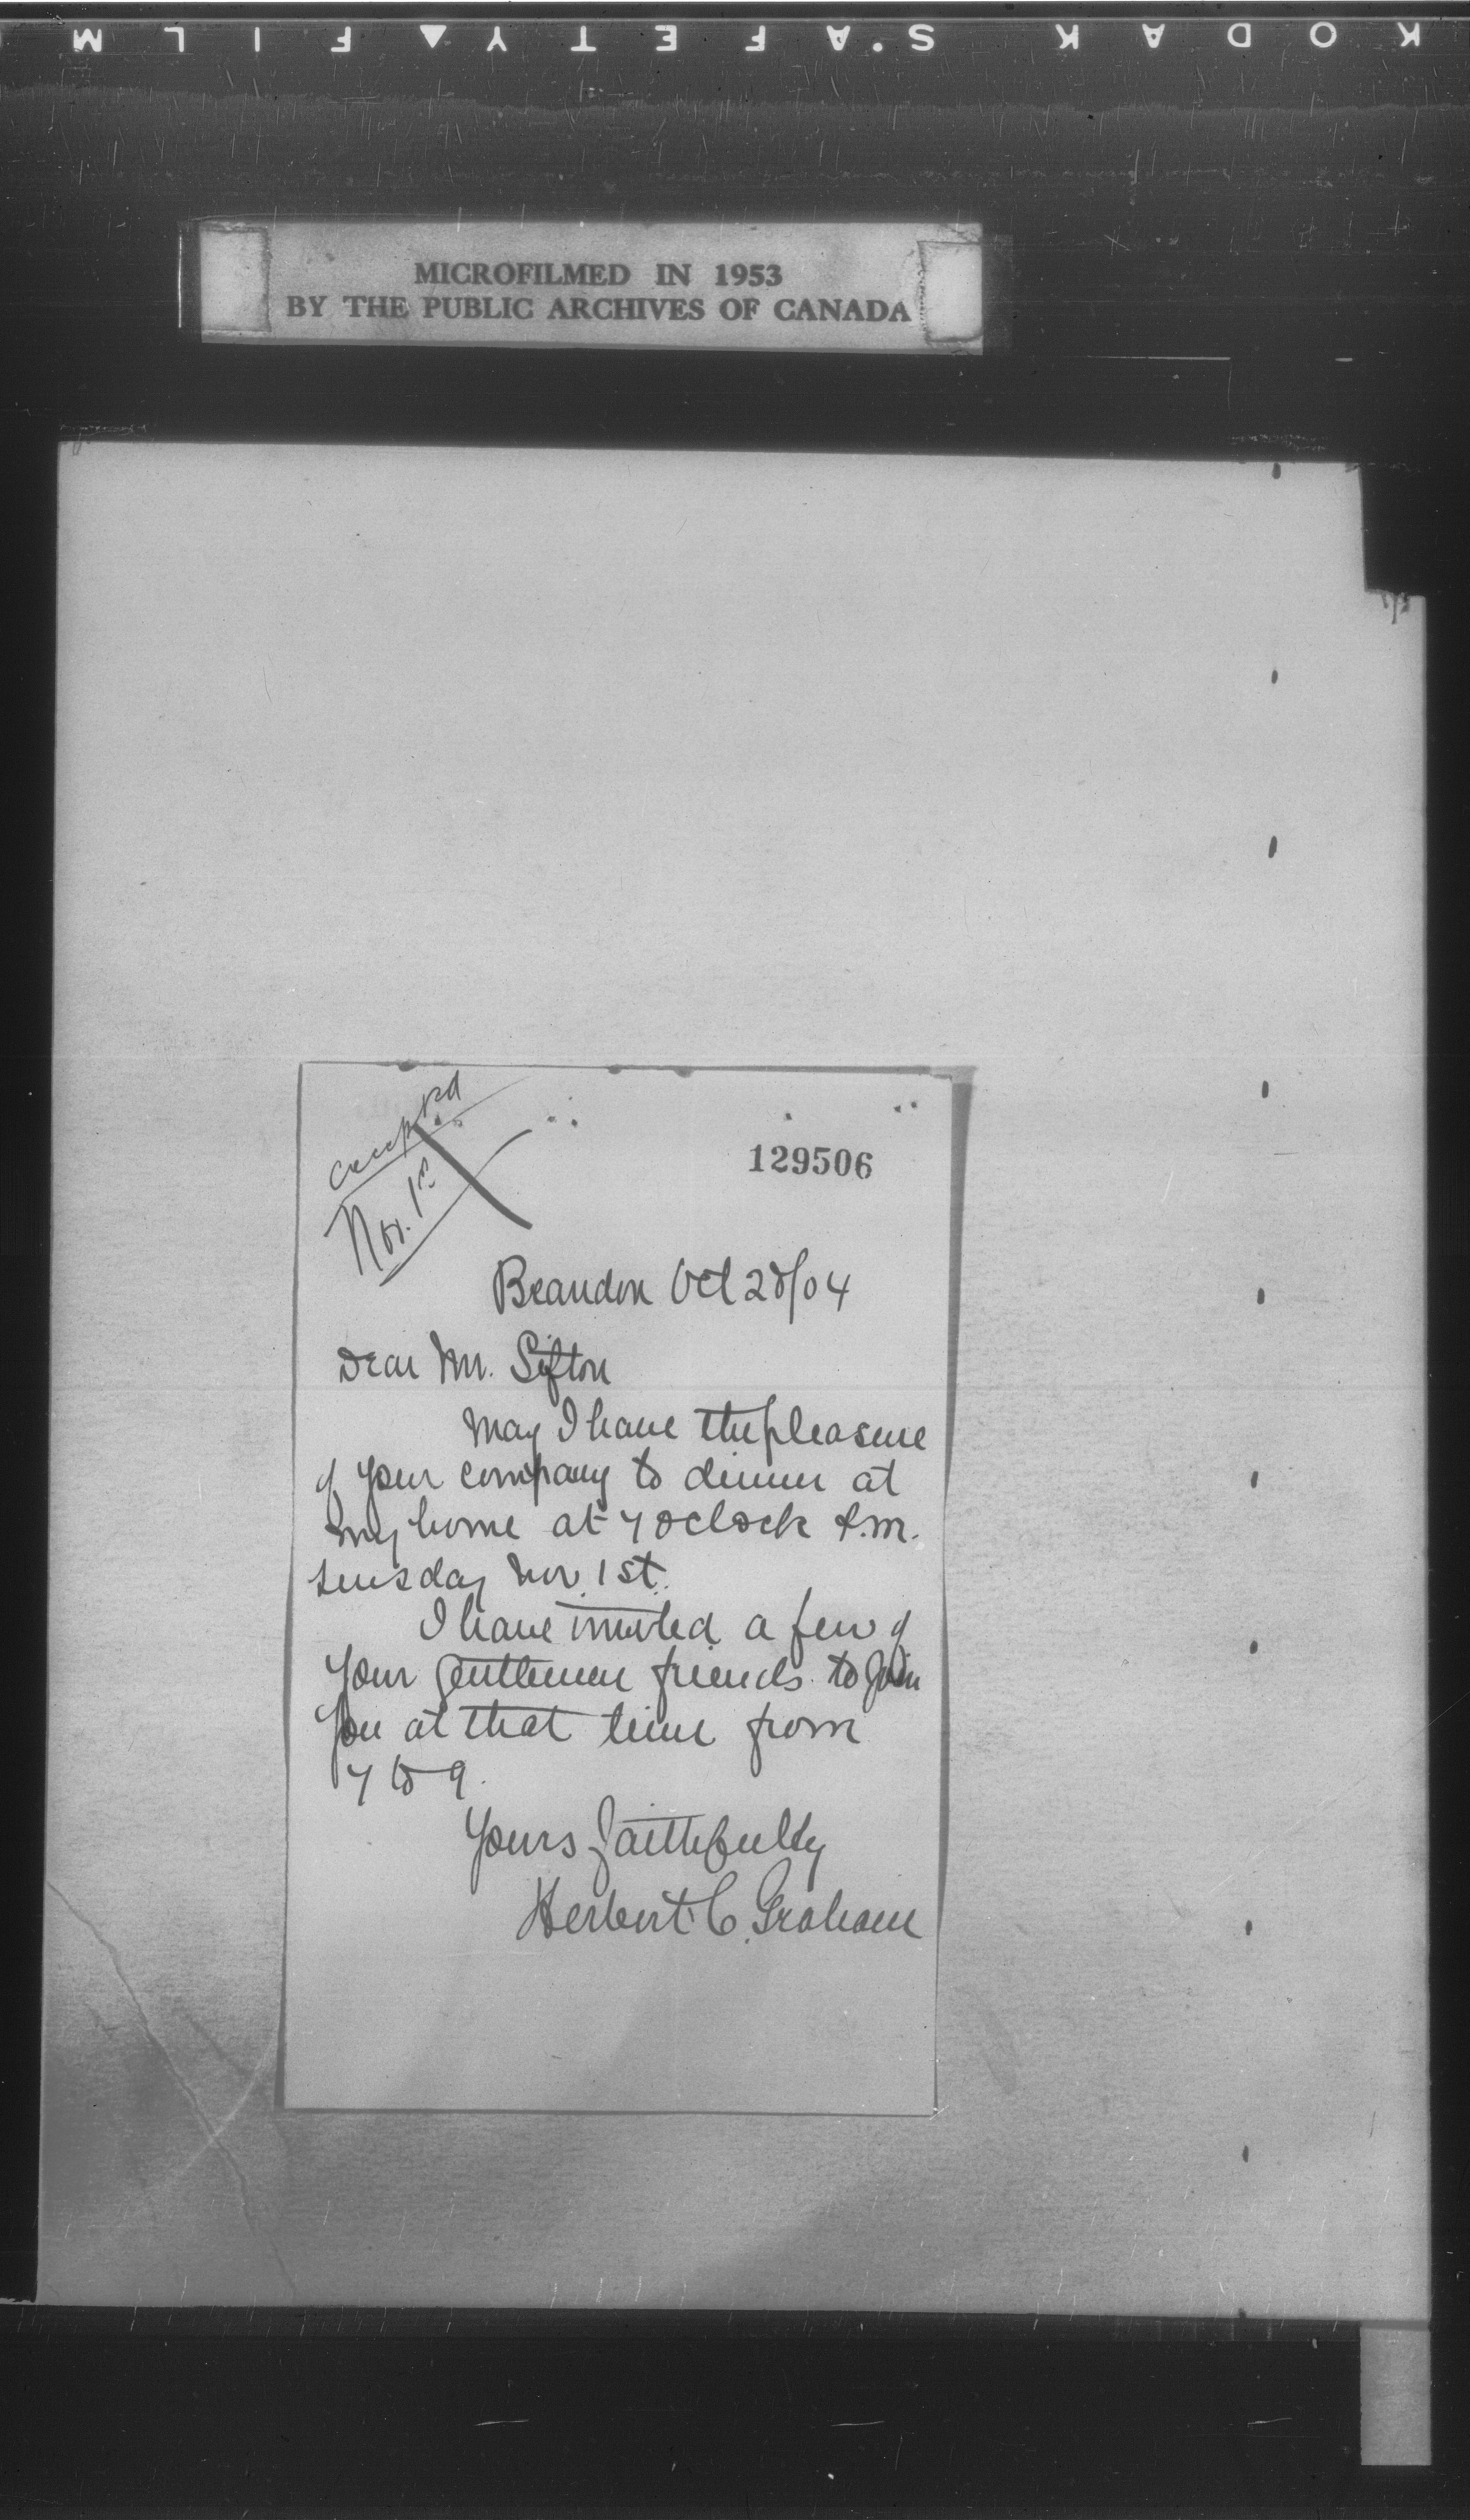 KODAK SAFETY FILM
MICROFILMED IN 1953
BY THE PUBLIC ARCHIVES OF CANADA
accepted
Nov. 1st
129506
Brandon Oct 28/04
Dear Mr. Sifton
May I have the pleasure
of your company to dinner at
my home at 7 oclock P.M.
Tuesday Nov 1st.
I have invited a few of
your gentlemen friends to join
you at that time from
7 to 9.
Yours faithfully
Herbert C. Graham